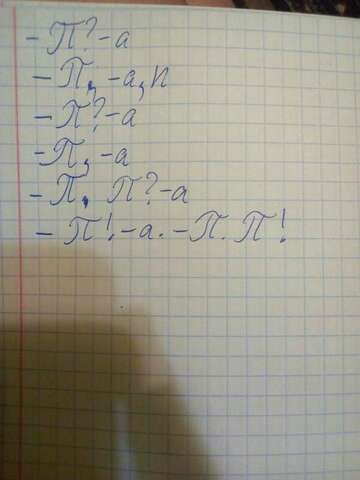 - П? - а
- П, - а, п
- П? - а
- П, - а
- П. П? - а
- П! - а. - П. П!